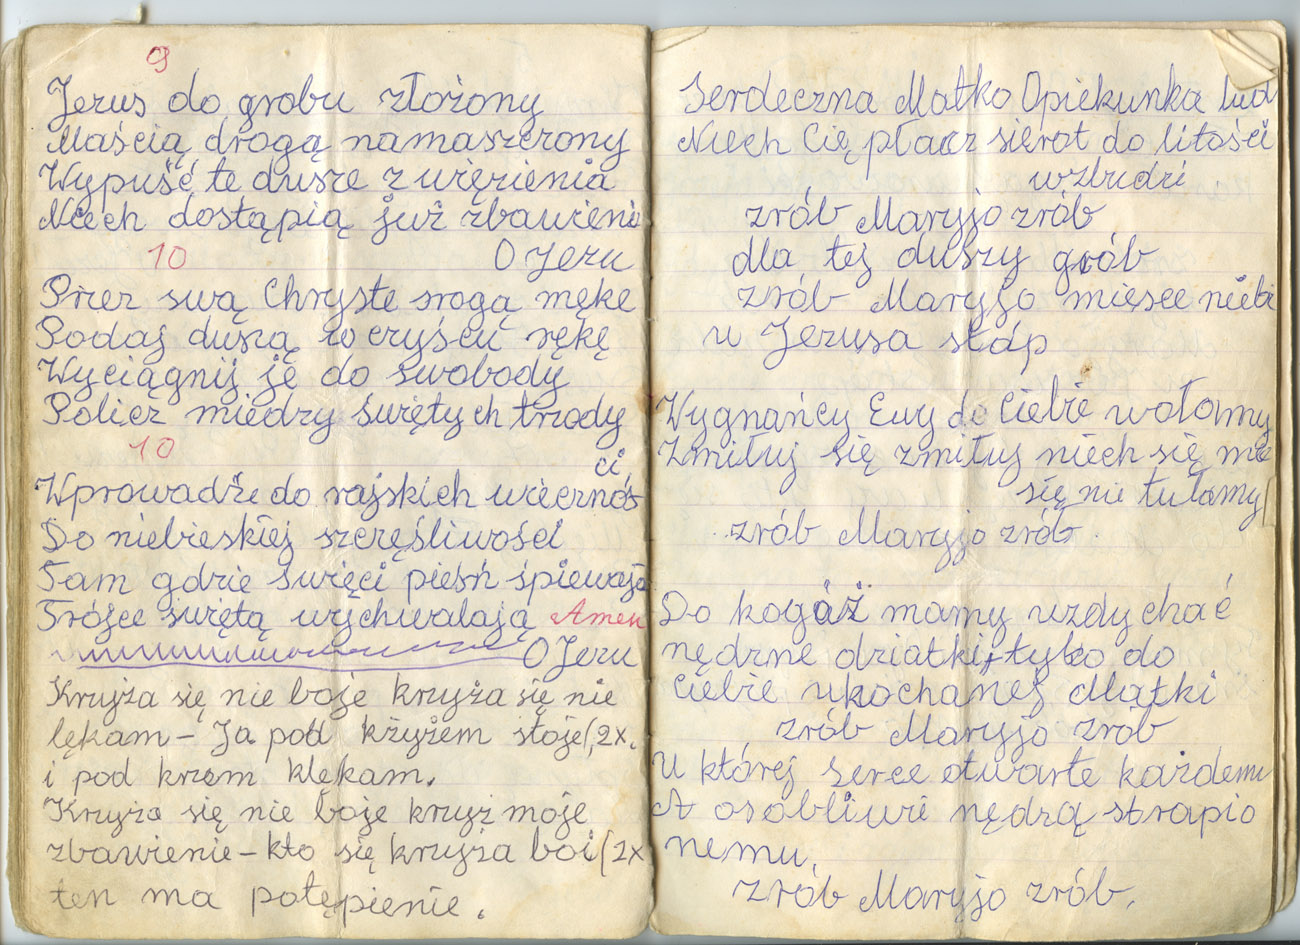 9
Jezus do grobu złożony
Maścią drogą namaszczony
Wypuść te dusze z więzienia
Niech dostąpią już zbawienia
10 O Jezu
Przez swą Chryste srogą mękę
Podaj duszą w czyścu rękę
Wyciągnij je do swobody
Policz miedzy świętych trzody
10
ci
Wprowadźe do rajskich wiecznoś
Do niebieskiej szczęśliwości
Tam gdzie święci pieśń śpiewają
Trójce świętą wychwalają Amen
O Jezu
Krzyża się nie boje krzyża się nie
lękam - Ja pod kżyżem stoje (2x.
i pod krzem klękam.
Krzyża się nie boje krzyż moje
zbawienie - kto się krzyża boi (2x
ten ma potępienie.
Serdeczna Matko Opiekunka lud
Niech Cię płacz sierot do litości
wzbudzi
zrób Maryjo zrób
dla tej duszy grób
zrób Maryjo miesce niebi
u Jezusa stóp
Wygnańcy Ewy do Ciebie wołamy
Zmiłuj się zmiłuj niech się nie
się nie tułamy
zrób Maryjo zrób.
Do kogóż mamy wzdychać
nędzne dziatki, tylko do
Ciebie ukochanej Matki
zrób Maryjo zrób
U której serce otwarte każdemu
A osobliwie nędzą strapio
nemu.
zrób Maryjo zrób.